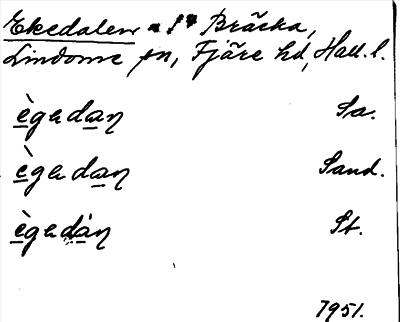 Ekedalen Bräcka,
Lindome sn, Fjäre hd, Hall. l.
ègadaŋ Sa.
ègadaŋ Sand.
ègadàŋ St.
1951.